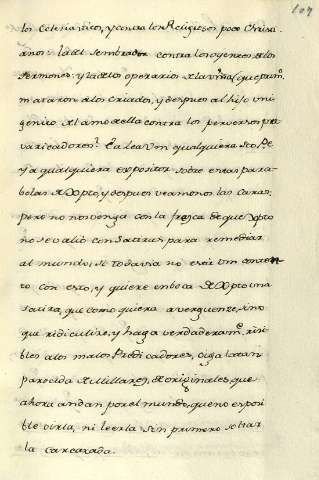 107
los Eclesiasticos, y contra los Religiosos poco Christi-
anos: la del sembrador contra los oyentes de los
sermones: y la de los operarios de la viña (que prim.º
mataron a los criados, y despues al hijo uni
genito del amo de ella contra los perversos pre
varicadores? Ea lea Vm qualquiera Sto. Pe.
y a qualquiera expositor sobre estas para-
bolas de Xpto, y despues veamonos las caras;
pero no nos venga con la fresca de que Xpto
no se valió con Satiras para remediar
al mundo; si todavia no está Vm conten
to con esto, y quiere en boca de Xpto una
satira, que como quiera averguenze, sino
que ridiculize, y haga verdaderam.te risi
bles a los malos Predicadores, oiga la tan
parecida de los originales, que
ahora andan por el mundo, que no es posi
ble oirla, ni leerla sin primero soltar
la carcaxada.